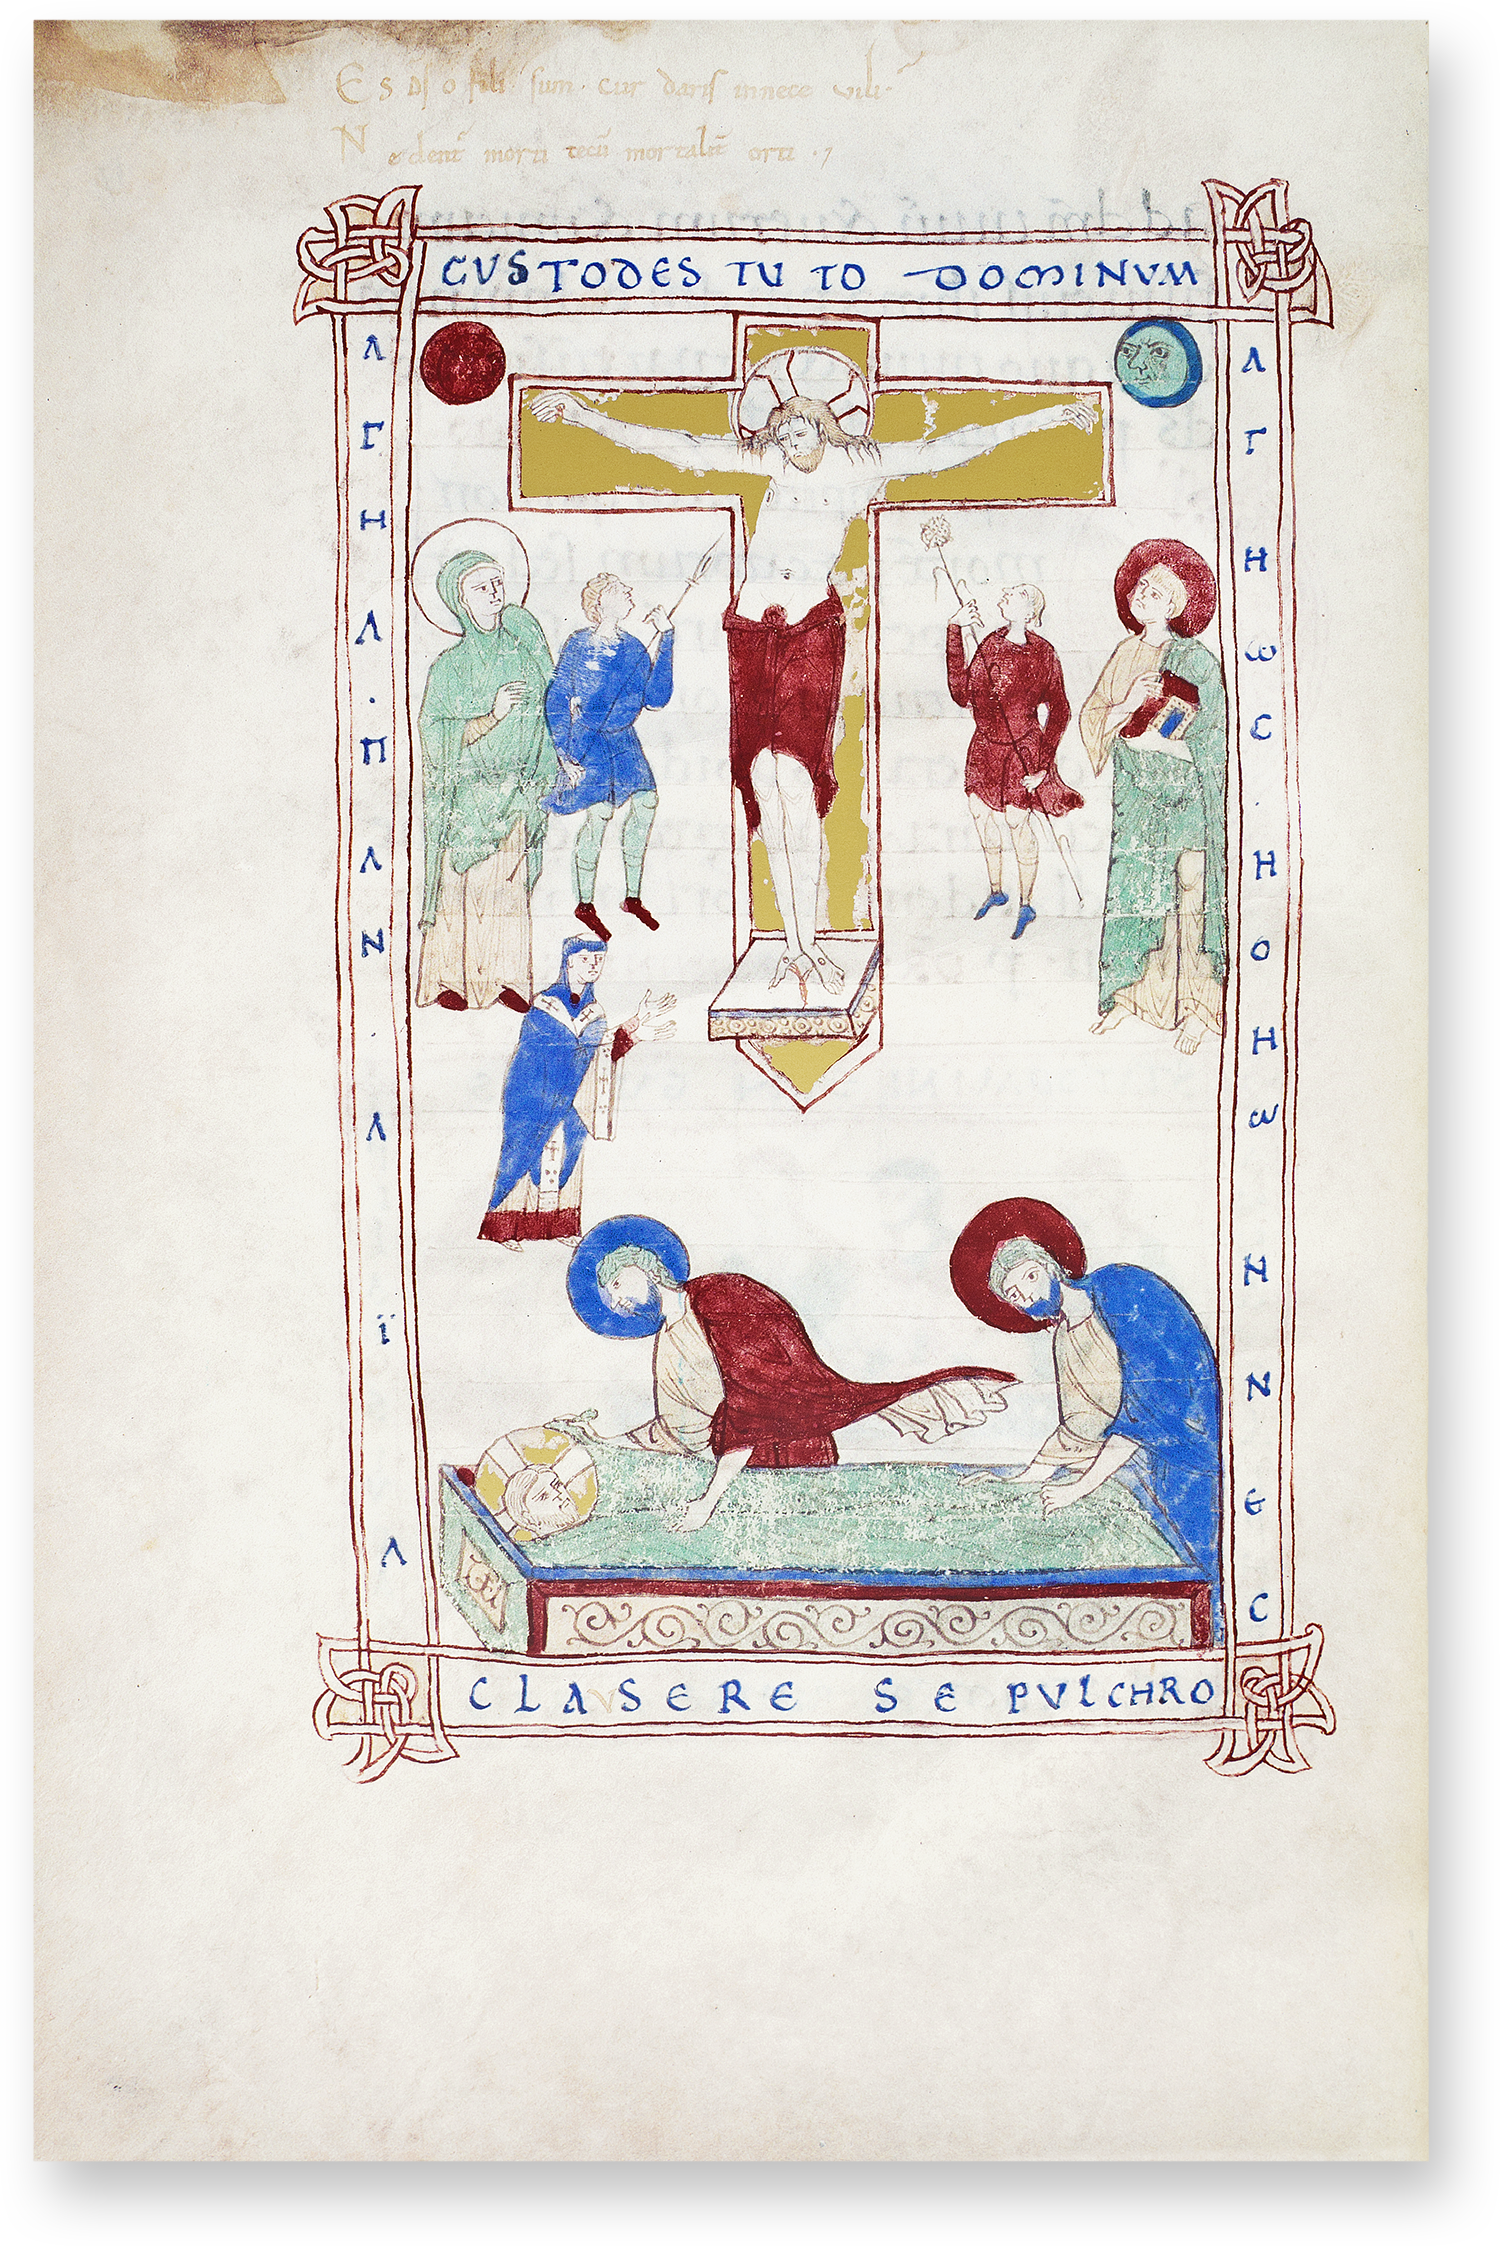 Es ds o fili sum. cur daris in nece vili.
Ne dent morti tecū mortalit orti .7
CUSTODES TUTO DOMINVM
ΛΓΗΛ · ΠΛΝ · ΛΪΛ
ΛΓΗωC · Η Ο Η ω Ν Ν Є C
CLAVSERE SEPVLCHRO